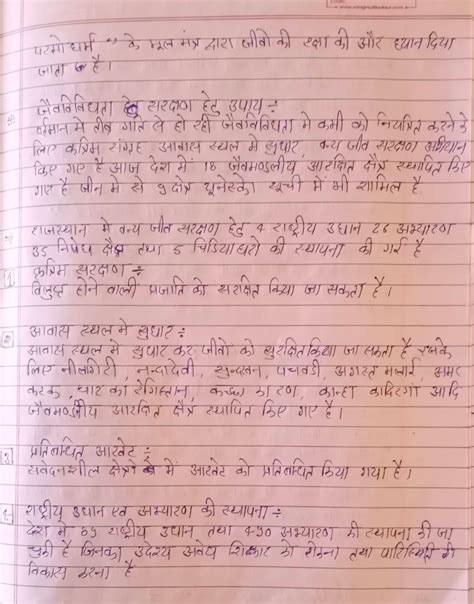 परमोधर्म" के मूल मंत्र द्वारा जीवो की रक्षा की और ध्यान दिया
जाता है।
जैवविविधता के सरक्षण हेतु उपाय :-
वर्तमान मे तीव्र गति से हो रही जैवविविधता मे कमी को नियत्रित करने के
लिए कत्रिम संग्रह, आवास स्थल मे सुधार, वन्य जीव सरक्षण अभियान
किए गए है आज देश मे 18 जैवमण्डलीय आरक्षित क्षैत्र स्थापित किए
गए है जीन मे से 9 क्षैत्र यूनेस्को सूची मे भी शामिल है
राजस्थान मे वन्य जीव सरक्षण हेतु 4 राष्ट्रीय उधान 26 अभ्यारण
33 निषेध क्षैत्र तथा 5 चिडियाघरो की स्थापना की गई है
कत्रिम सरक्षण :-
विलुप्त होने वाली प्रजाति को सरक्षित किया जा सकता है।
आवास स्थल मे सुधार :-
आवास स्थल मे सुधार कर जीवो को सुरक्षित किया जा सकता है इसके
लिए नीलगिरी, नन्दादेवी, सुन्दरवन, पचमडी, अगस्त मलाई, अमर
कटक, थार का रेगिस्तान, कच्छ का रण, कान्हा आदि
जैवमण्डलीय आरक्षित क्षैत्र स्थापित किए गए है।
प्रतिबन्धित आखेट :-
संवेदनशील क्षैत्रो मे आखेट को प्रतिबन्धित किया गया है।
राष्ट्रीय उधान एव अभ्यारण की स्थापना :-
देश मे राष्ट्रीय उधान तथा 490 अभ्यारण की स्थापना की जा
चुकी है जिनका उदेश्य अवैध शिकार को रोकना तथा पारिस्थिती की
विकास करना है